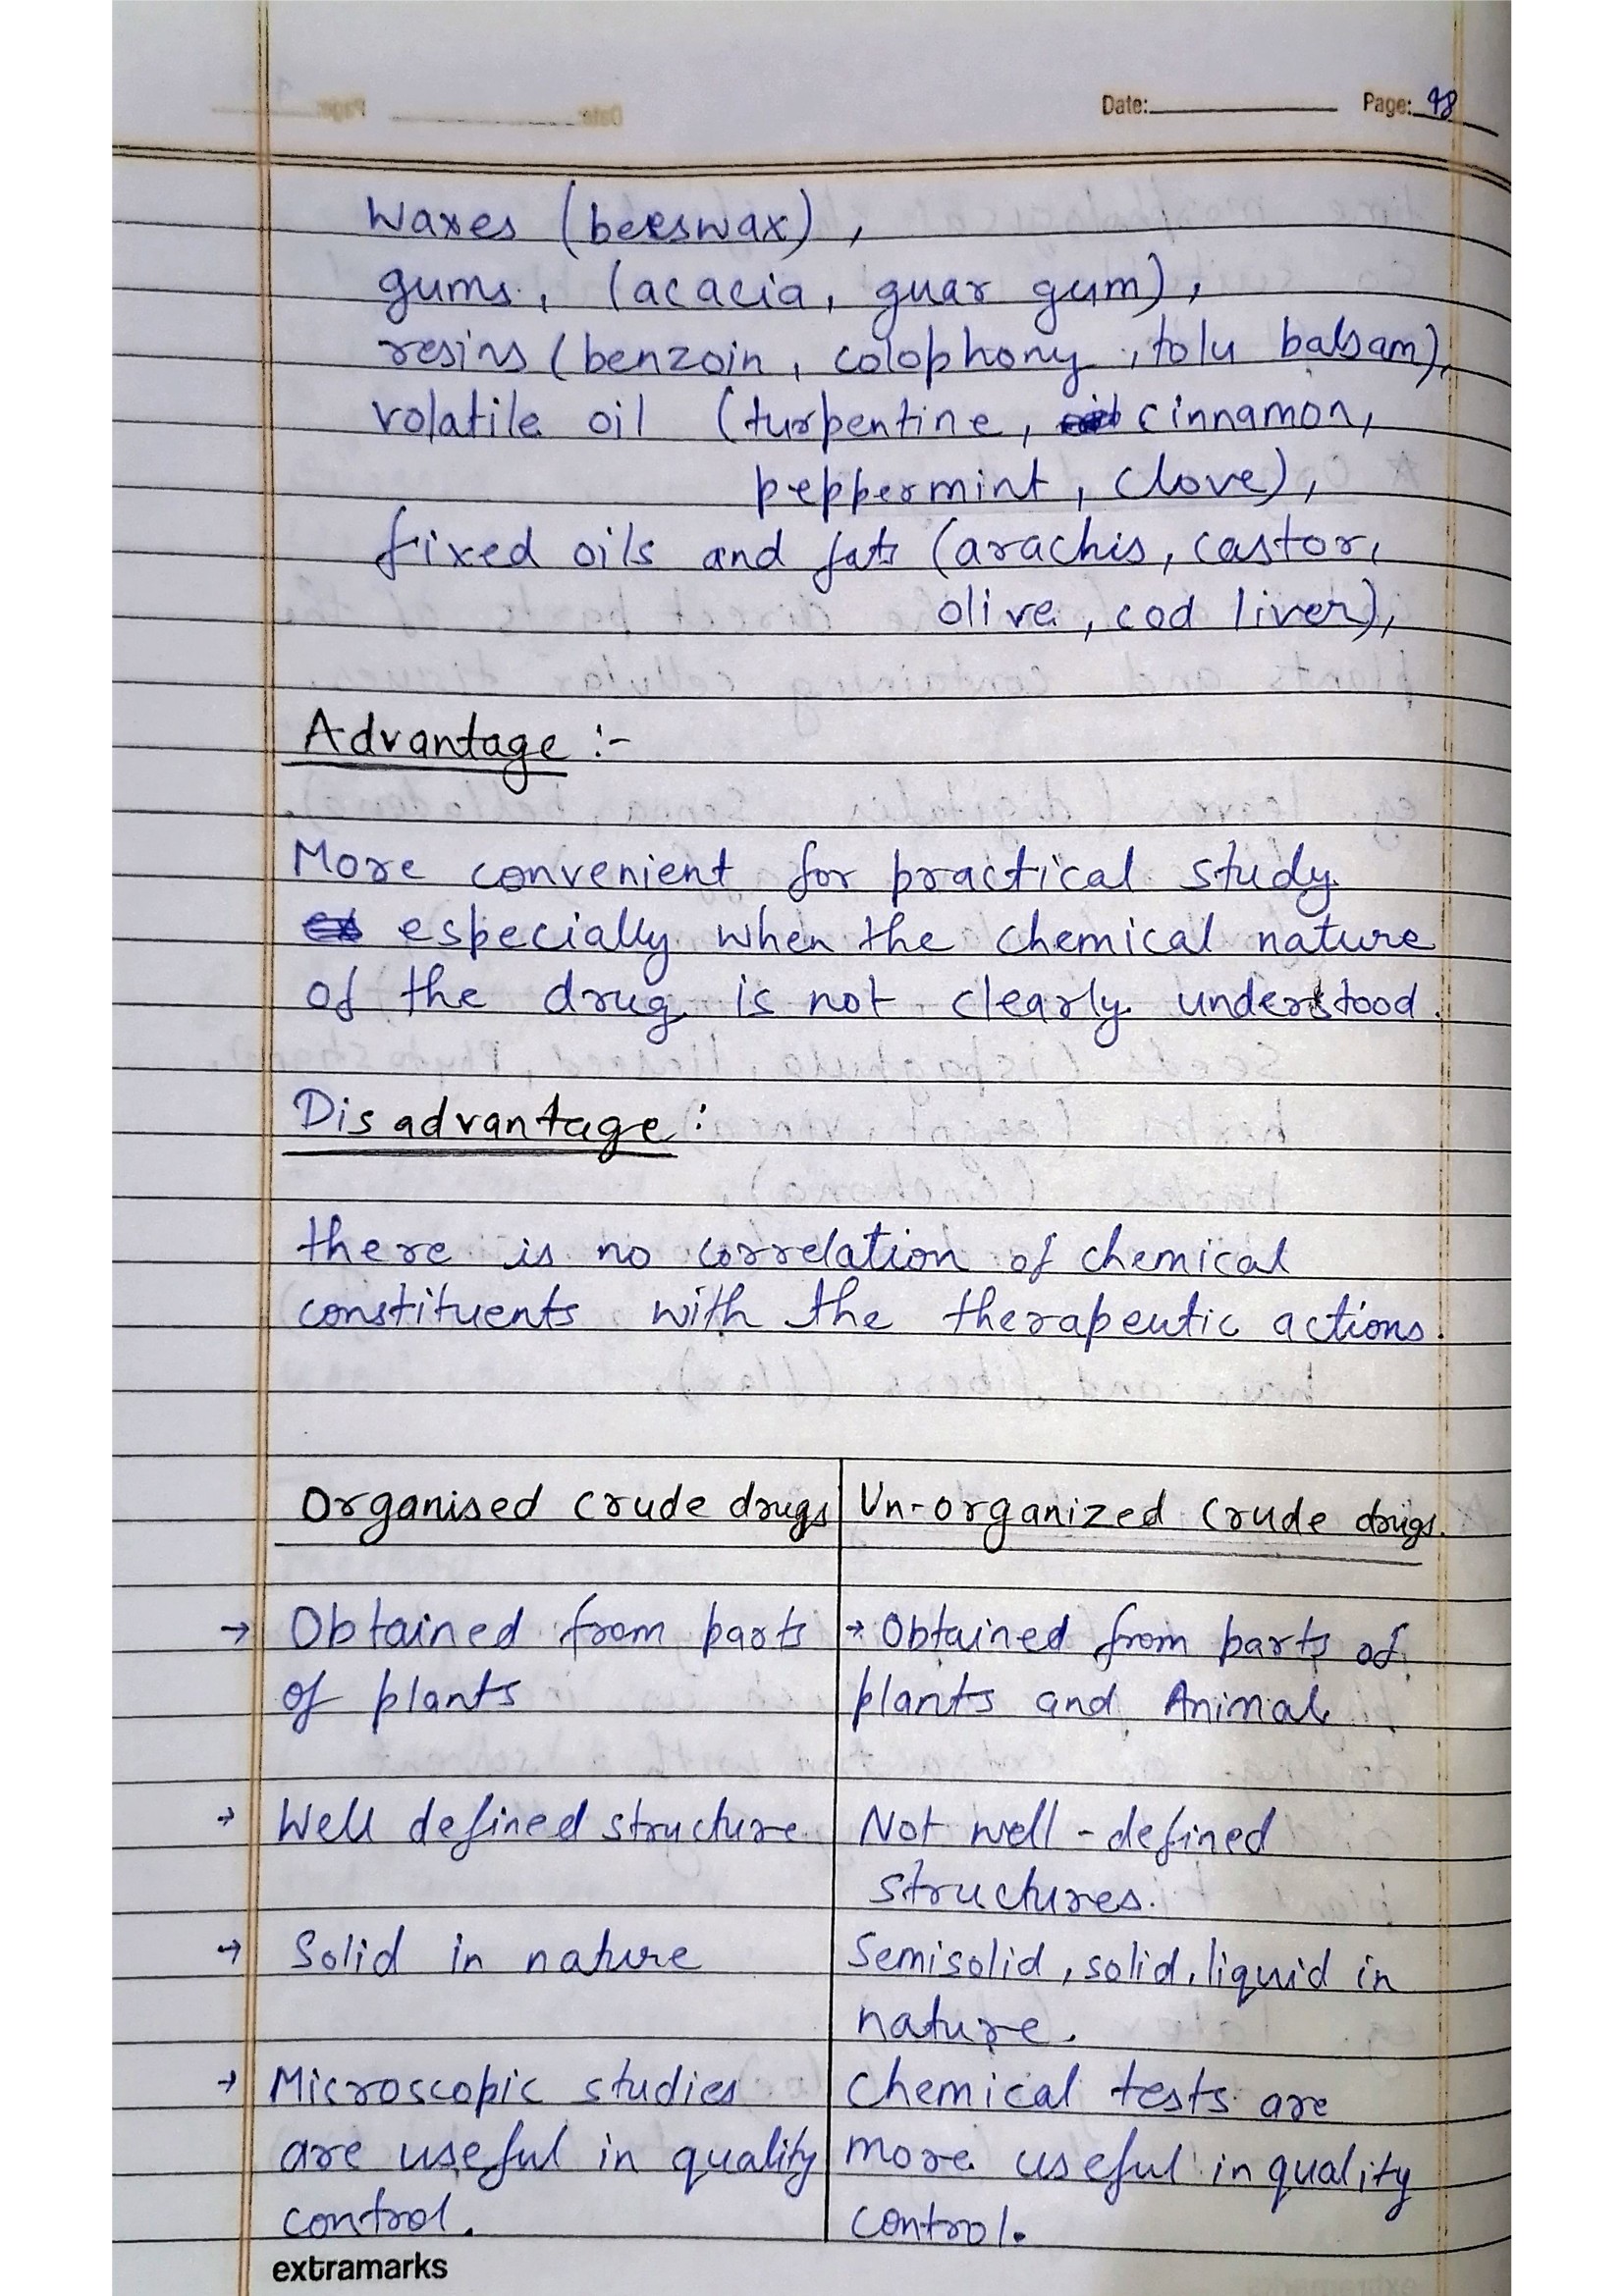 Date: Page: 98
Waxes (beeswax),
gums, (acacia, guar gum),
resins (benzoin, colophony, tolu balsam),
volatile oil (turpentine, cinnamon,
peppermint, clove),
fixed oils and fats (arachis, castor,
olive, cod liver),
Advantage :-
More convenient for practical study
especially when the chemical nature
of the drug is not clearly understood.
Disadvantage :
there is no correlation of chemical
constituents with the therapeutic actions.
Organised crude drugs | Un-organized crude drugs.
→ Obtained from parts | → Obtained from parts of
of plants | plants and Animal
→ Well defined structure | Not well-defined
structures.
→ Solid in nature | Semisolid, solid, liquid in
nature.
→ Microscopic studies | Chemical tests are
are useful in quality | more useful in quality
control. | control.
extramarks